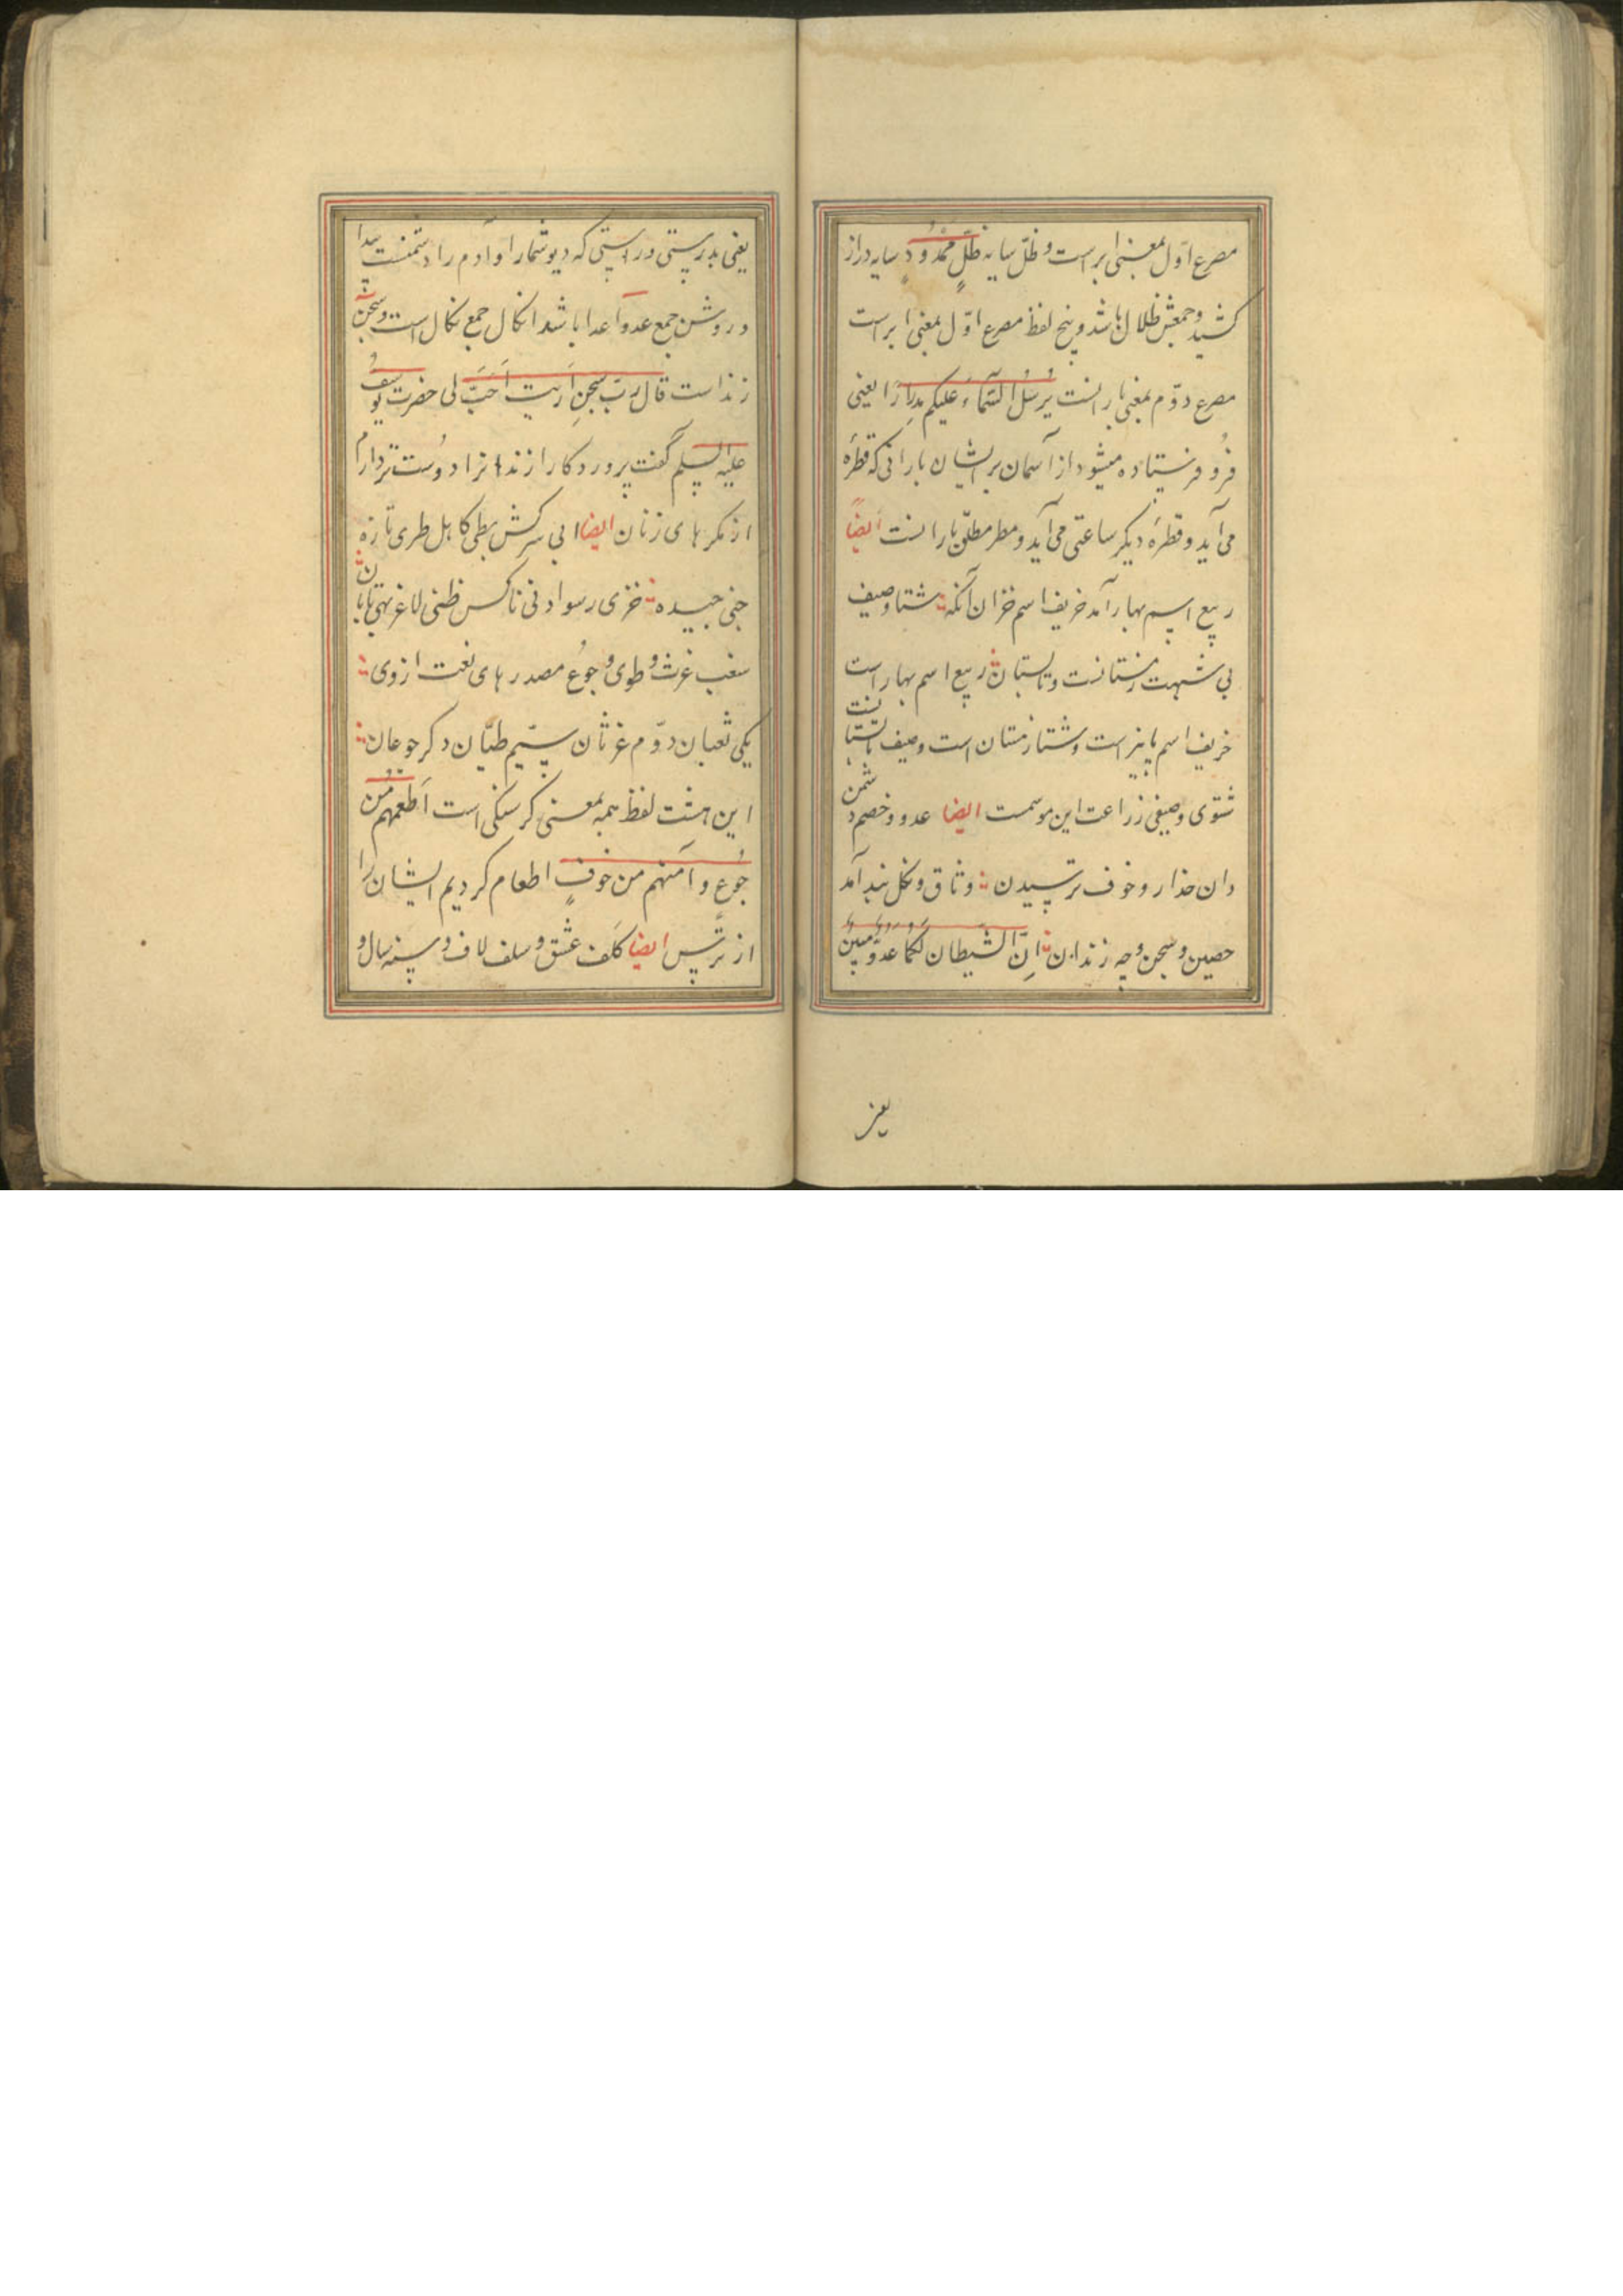 مصرع اوّل بمعنی ابر است و ظلّ سایه ظلٍّ ممدُودٍ سایه دراز
کشید و جمعش ظلال باشد و پنج لفظ مصرع اوّل بمعنی ابر است
مصرع دوّم بمعنی بارانست یُرسُل السّماءَ علیکم مدرارًا یعنی
فرُو فرستاده میشود از آسمان بر ایشان بارانی که قطرهٔ
می آید و قطرهٔ دیگر ساعتی می آید و مطر مطلق بارانست ایضًا
ربیع اسم بهار آمد خریف اسم خزان آنکه شتا و صیف
بی شبهت زمستانست و تابستان ربیع اسم بهار است
خریف اسم پاییز است و شتا زمستان است و صیف تابستانست
شتوی و صیفی زراعت این موسمست ایضا عدو و خصم دشمن
دان حذار و خوف ترسیدن وثاق و نکل بند آمد
حصین و سجن و چه زندان انّ الشّیطان لکما عدوٌّ مبینٌ
یعنی
یعنی بدرستی و راستی که دیو شما را و آدم را دشمنست پیدا
و روشن جمع عدو اعدا باشد انکال جمع نکال است و سجن
زندانست قال ربّ سجن اریت احَبّ لی حضرت یوسف
علیه السلم گفت پروردگارا زندانرا دوست تر دارم
از مکرهای زنان ایضا ابی سرکش بطی کاهل طری تازه
جنی چیده خزی رسوا دنی ناکس ظنی لاغر بهی تابان
سغب غرث و طوی و جوع مصدرهای نعت از وی
یکی ثعبان دوّم غرثان سیّم طیّان دکر جوعان
این هشت لفظ همه بمعنی کرسنکی است اَطعمهم من
جُوع و آمنهم من خوفٍ اطعام کردیم ایشان را
از ترس ایضا کَلَف عشق و سلف لاف و سنه سال و